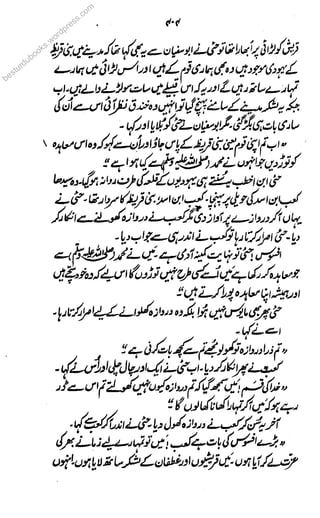 besturdubooks.wordpress.com
۴۰۴
قریش کو لڑائی پر ابھارا تھا تو حُئی نے ابوسفیان سے یہ بھی کہا تھا کہ مدینے میں بنی قریظہ
کے یہودی موجود ہیں وہ بھی ہماری قوم کے ہیں اور اس لڑائی میں ہمارے
تمہارے ساتھ رہیں گے اور یہ کہ اس قبیلے میں سات سو لڑنے والے ہیں۔ اب
جبکہ یہ لشکر مدینے کے سامنے پہنچ گیا تو انہیں وہ خندق نظر آئی اس سے ان کی
ساری بات ہی بگڑ گئی، مگر ابوسفیان نے حُئی کو بلایا اور کہا۔
"اب تم اپنی قوم یعنی بنی قریظہ کے پاس جاؤ اور ان سے کہو کہ وہ اس معاہدہ
کو توڑ دیں جو انہوں نے محمد (صلی اللہ علیہ وسلم) سے کیا ہوا ہے"
حُئی ابن اخطب یہ سنتے ہی یہودیوں کے قلعہ کی طرف روانہ ہو گیا۔ وہ سیدھا
کعب ابن اسد کی حویلی پر پہنچا۔ کعب ابن اسد بنی قریظہ کا سردار تھا۔ حُئی نے
یہاں آ کر دروازے پر آواز دی مگر کعب نے دروازہ کھولنے سے انکار کر
دیا۔ حُئی اصرار کرتا رہا تو کعب نے اندر ہی سے جواب دیا۔
افسوس حُئی تو نہایت کمینہ آدمی ہے۔ میں نے محمد (صلی اللہ علیہ وسلم) سے
جو معاہدہ کر رکھا ہے میں اُسے کسی طرح نہیں توڑوں گا اس لیے کہ وہ خود سچے ہیں
اور ہمیشہ اپنا معاہدہ پورا کرتے ہیں"
حُئی پھر بھی مایوس نہیں ہوا بلکہ وہ دروازہ کھلوانے کے لیے اصرار کرتا رہا۔
اسے نے کہا۔
"تم ذرا دروازہ تو کھولو مجھے تم سے کچھ بات کرنی ہے"
کعب نے پھر انکار کر دیا۔ اب حُئی نے ایک اور چال چلی اور اُس نے کہا۔
"خدا کی قسم! میں سمجھ گیا کہ تم دروازہ کیوں نہیں کھولتے تم اس سے ڈر
رہے ہو کہ میں آکر تمہارا کھانا کھا لوں گا"
آخر یہ سن کر کعب نے دروازہ کھول دیا۔ حُئی نے اندر آ کر کعب سے کہا۔
"بڑے افسوس کی بات ہے کعب! میں تو تمہارے لیے زمانے بھر کی
عزت لے کر آیا ہوں۔ میں قریشیوں اور غطفان کے لشکر ساتھ لایا ہوں۔ انہوں